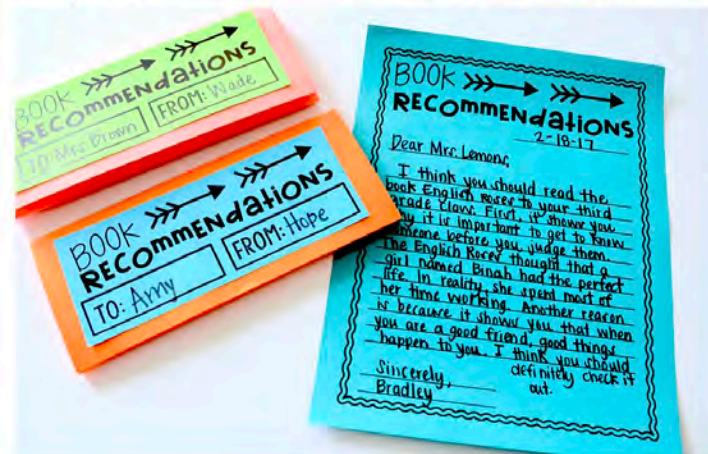 BOOK
RECOMMENDATIONS
TO: Mrs. Brown
FROM: Wade
BOOK
RECOMMENDATIONS
TO: Amy
FROM: Hope
BOOK
RECOMMENDATIONS
2-18-17
Dear Mrs. Lemons,
I think you should read the
book English Roses to your third
grade class. First, it shows you
why it is important to get to know
someone before you judge them.
The English Roses thought that a
girl named Binah had the perfect
life. In reality, she spent most of
her time working. Another reason
is because it shows you that when
you are a good friend, good things
happen to you. I think you should
definitely check it
out.
Sincerely,
Bradley